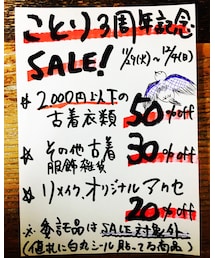 ことり3周年記念
SALE! 11/29(火)~12/4(日)
☆ 2,000円以下の
古着衣類 50%off
☆ その他古着
服飾雑貨 30%off
☆ リメイク、オリジナルアクセ
20%off
※ 委託品はSALE対象外
(値札に白丸シール貼ってる商品)